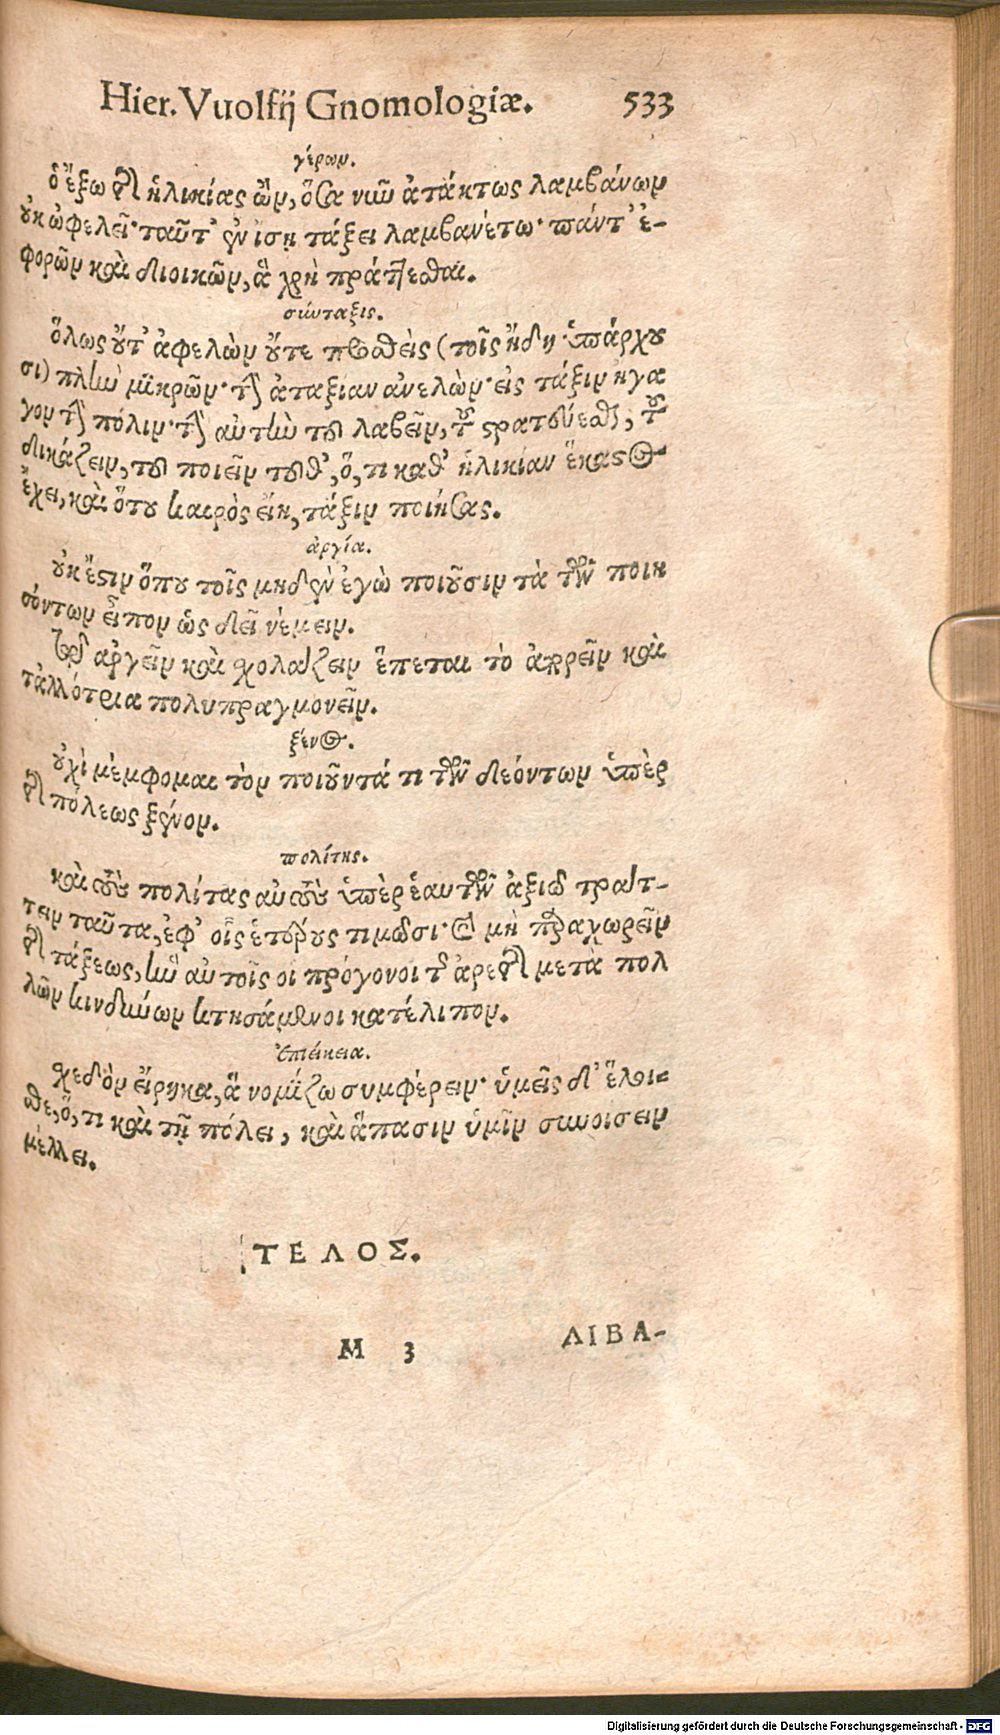 Hier. Vuolfij Gnomologiæ. 533
γέρων.
ὁ ἔξω τῆς ἡλικίας ὢν, ὅσα νῦν ἀτάκτως λαμβάνων
οὐκ ὠφελεῖ· ταῦτ' ἐν ἴσῃ τάξει λαμβανέτω· πάντ' ἐ-
φορῶν καὶ διοικῶν, ἃ χρὴ πράττεσθαι.
σύνταξις.
ὅλως οὔτ' ἀφελὼν οὔτε προσθεὶς (τοῖς ἤδη ὑπάρχου
σι) πλὴν μικρῶν· τὴν ἀταξίαν ἀνελὼν· εἰς τάξιν ἤγα
γον τὴν πόλιν· τὴν αὐτὴν τοῦ λαβεῖν, τοῦ στρατεύεσθαι, τοῦ
δικάζειν, τοῦ ποιεῖν τοῦθ', ὅ, τι καθ' ἡλικίαν ἕκαστος
ἔχει, καὶ ὅτου καιρὸς εἴη, τάξιν ποιήσας.
ἀργία.
οὐκ ἔστιν ὅπου τοῖς μηδὲν ἐγὼ ποιοῦσιν τὰ τῶν ποιη
σόντων εἶπον ὡς δεῖ νέμειν.
τῷ ἀργεῖν καὶ σχολάζειν ἕπεται τὸ ἀπορεῖν καὶ
τἀλλότρια πολυπραγμονεῖν.
ξένος.
οὐχὶ μέμφομαι τὸν ποιοῦντά τι τῶν δεόντων ὑπὲρ
τῆς πόλεως ξένον.
πολίτης.
καὶ τοὺς πολίτας αὐτοὺς ὑπὲρ ἑαυτῶν ἀξιῶ πράτ-
τειν ταῦτα, ἐφ' οἷς ἑτέρους τιμῶσι· καὶ μὴ παραχωρεῖν
τῆς τάξεως, ἣν αὐτοῖς οἱ πρόγονοι τῆς ἀρετῆς μετὰ πολ
λῶν κινδύνων κτησάμενοι κατέλιπον.
ἐπιείκεια.
σχεδὸν εἴρηκα, ἃ νομίζω συμφέρειν· ὑμεῖς δ' ἕλοι-
σθε, ὅ, τι καὶ τῇ πόλει, καὶ ἅπασιν ὑμῖν συνοίσειν
μέλλει.
ΤΕΛΟΣ.
M 3 ΛΙΒΑ-
Digitalisierung gefördert durch die Deutsche Forschungsgemeinschaft - DFG